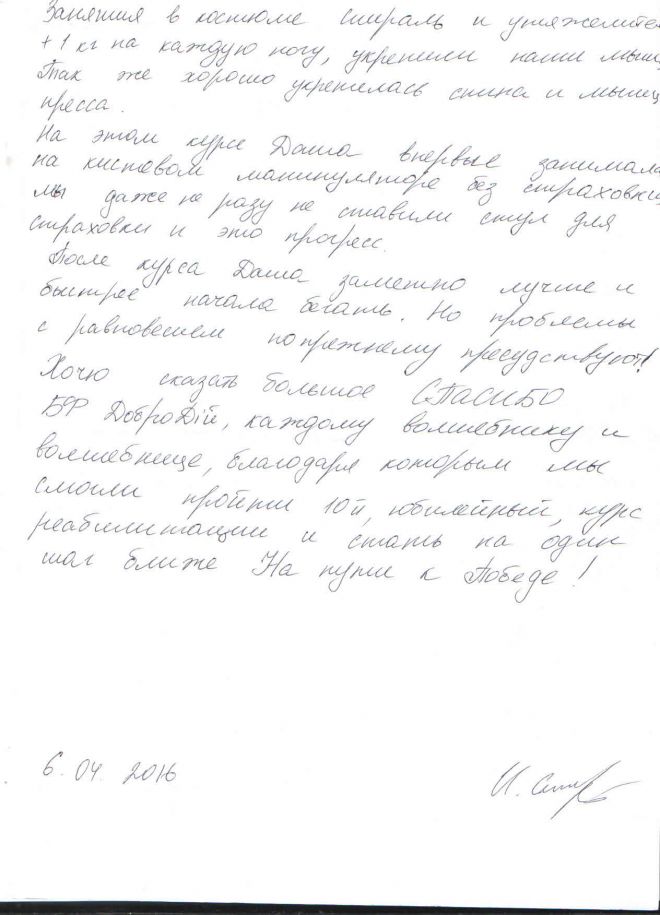 Занятия в костюме спираль и утяжелите
+ 1 кг на каждую ногу, укрепили наши мыш
Так же хорошо укрепилась спина и мышц
пресса.
На этом курсе Даша впервые занимала
на кистевом манипуляторе без страховки,
мы даже не разу не ставили стул для
страховки и это прогресс.
После курса Даша заметно лучше и
быстрее начала бегать. Но проблемы
с равновесием попрежнему пресудствуют!
Хочю сказать большое СПАСИБО
БФ ДоброДій, каждому волшебнику и
волшебнице, благодаря которым мы
смогли пройти 10й, юбилейный, курс
реабилитации и стать на один
шаг ближе На пути к Победе!
6. 04. 2016